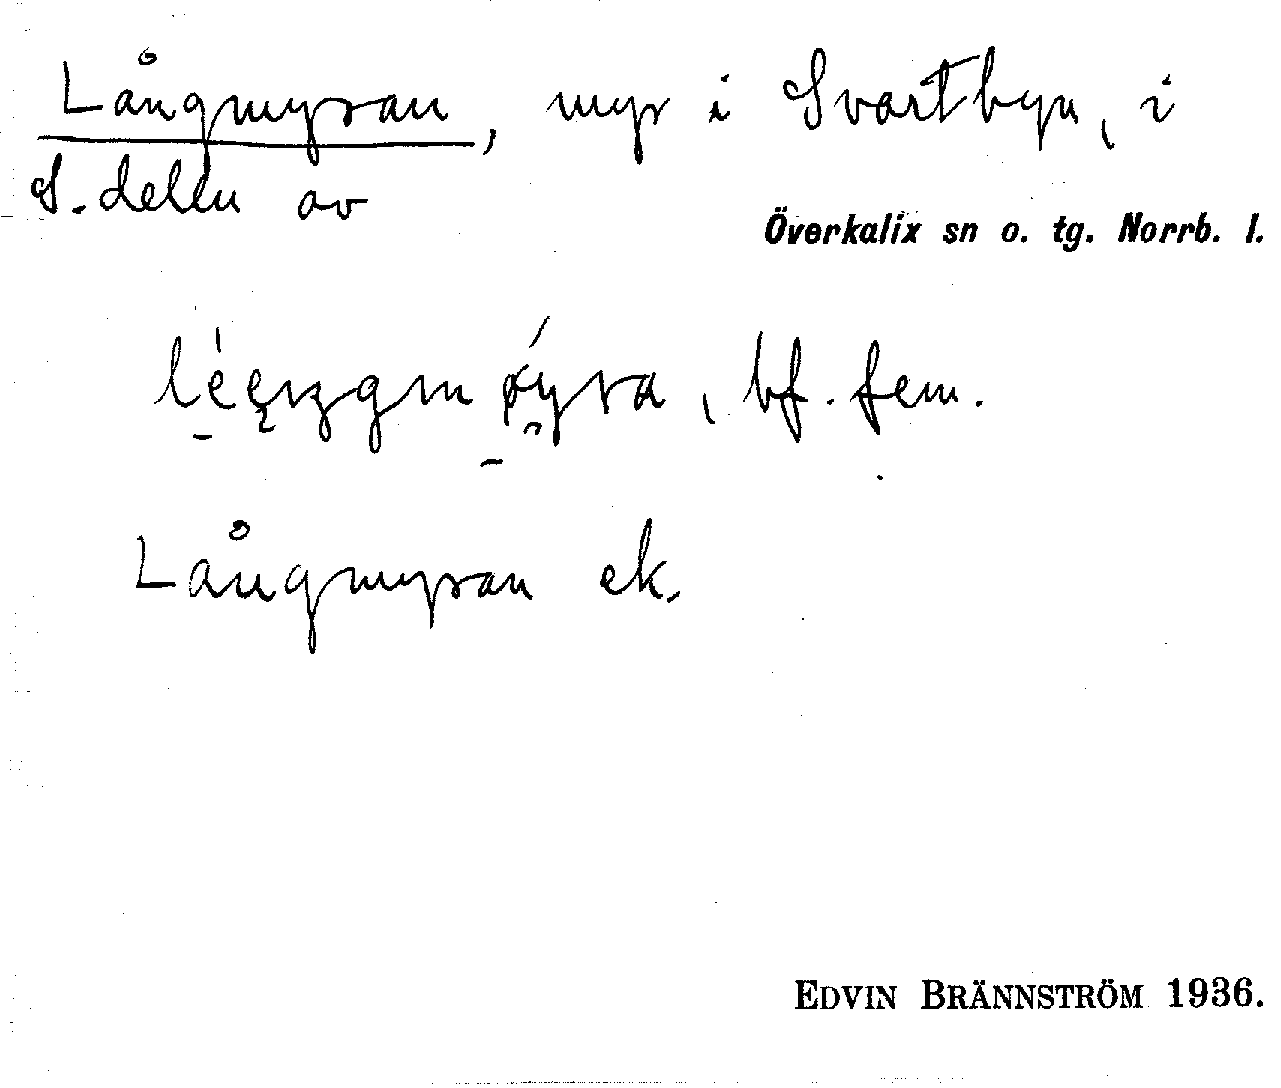 Långmyran, myr i Svartbyn, i
S. delen av
Överkalix sn o. tg. Norrb. l.
bf. fem.
Långmyran ek.
EDVIN BRÄNNSTRÖM 1936.